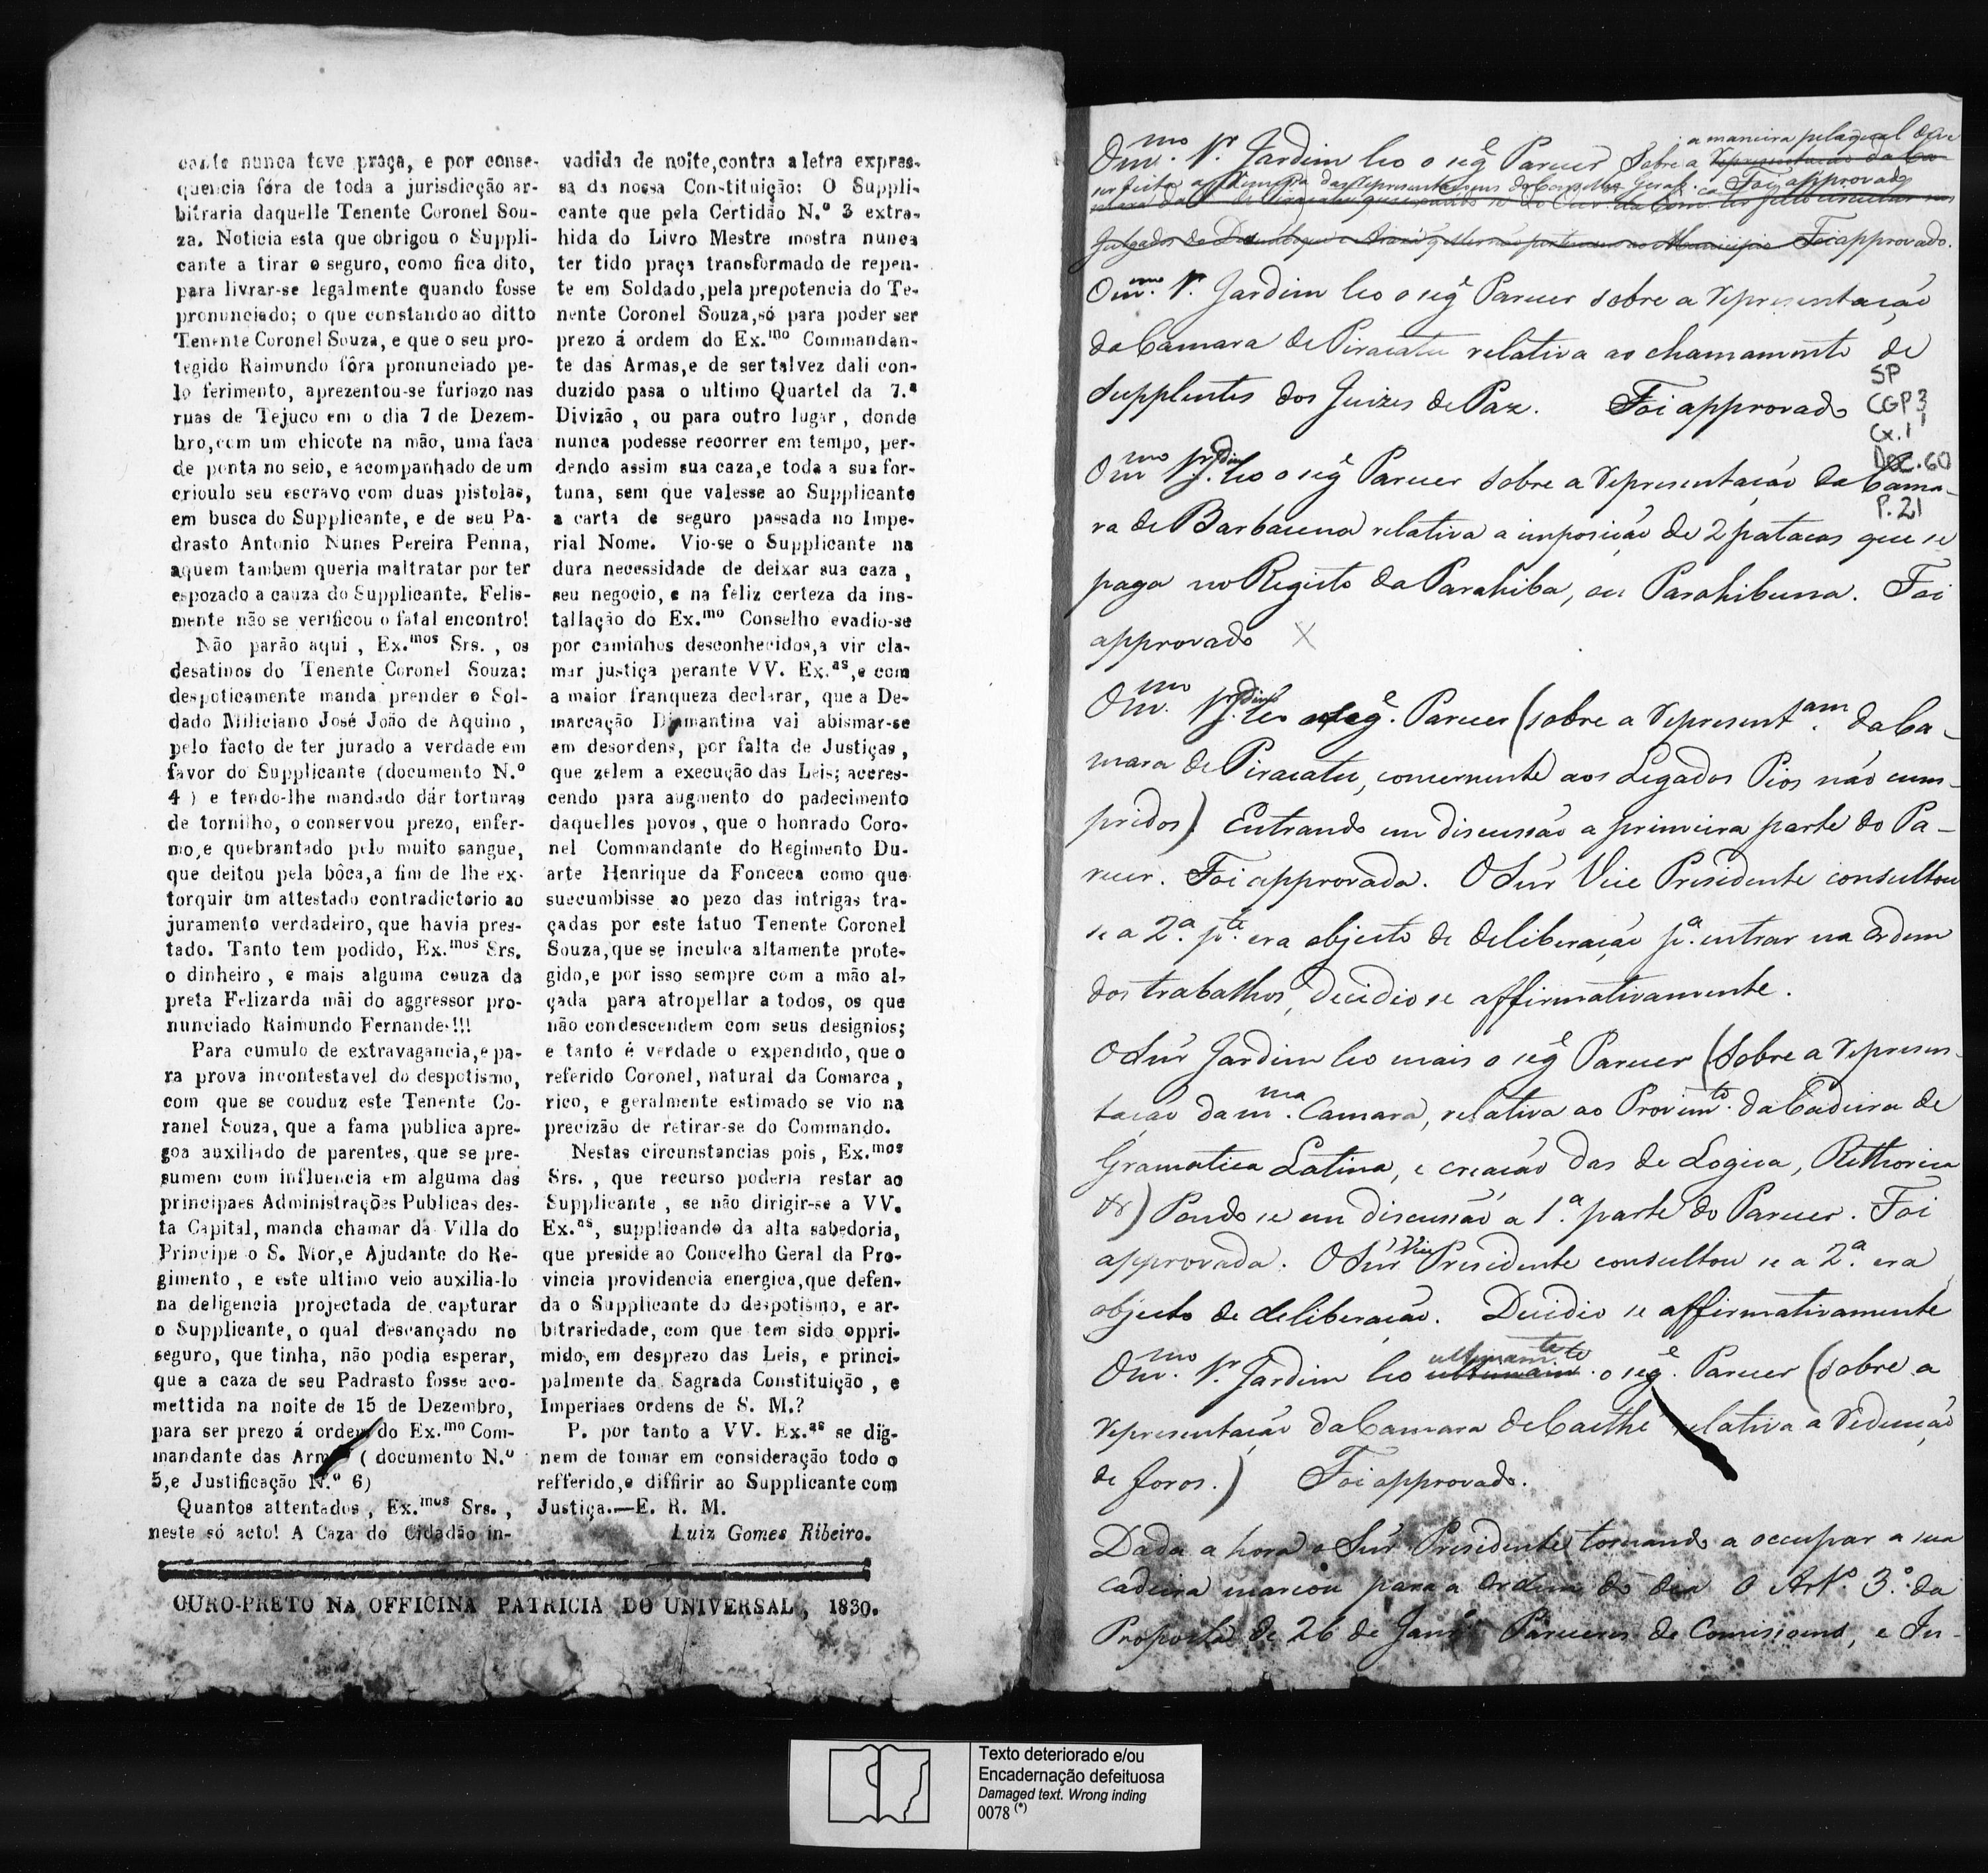 cante nunca teve praça, e por conse-
quencia fóra de toda a jurisdicção ar-
bitraria daquelle Tenente Coronel Sou-
za. Noticia esta que obrigou o Suppli-
cante a tirar o seguro, como fica dito,
para livrar-se legalmente quando fosse
pronunciado; o que constando ao ditto
Tenente Coronel Souza, e que o seu pro-
tegido Raimundo fôra pronunciado pe-
lo ferimento, aprezentou-se furiozo nas
ruas de Tejuco em o dia 7 de Dezem-
bro, com um chicote na mão, uma faca
de ponta no seio, e acompanhado de um
crioulo seu escravo com duas pistolas,
em busca do Supplicante, e de seu Pa-
drasto Antonio Nunes Pereira Penna,
aquem tambem queria maltratar por ter
espozado a cauza do Supplicante. Felis-
mente não se verificou o fatal encontro!
Não parão aqui, Ex.mos Srs., os
desatinos do Tenente Coronel Souza:
despoticamente manda prender o Sol-
dado Miliciano José João de Aquino,
pelo facto de ter jurado a verdade em
favor do Supplicante (documento N.º
4) e tendo-lhe mandado dár torturas
de tornilho, o conservou prezo, enfer-
mo, e quebrantado pelo muito sangue,
que deitou pela bôca, a fim de lhe ex-
torquir um attestado contradictorio ao
juramento verdadeiro, que havia pres-
tado. Tanto tem podido, Ex.mos Srs.
o dinheiro, e mais alguma couza da
preta Felizarda mãi do aggressor pro-
nunciado Raimundo Fernandes!!!
Para cumulo de extravagancia, e pa-
ra prova incontestavel do despotismo,
com que se conduz este Tenente Co-
ranel Souza, que a fama publica apre-
goa auxiliado de parentes, que se pre-
sumem com influencia em alguma das
principaes Administrações Publicas des-
ta Capital, manda chamar da Villa do
Principe o S. Mor, e Ajudante do Re-
gimento, e este ultimo veio auxilia-lo
na deligencia projectada de capturar
o Supplicante, o qual descançado no
seguro, que tinha, não podia esperar,
que a caza de seu Padrasto fosse aco-
mettida na noite de 15 de Dezembro,
para ser prezo á ordem do Ex.mo Com-
mandante das Armas (documento N.º
5, e Justificação N.º 6)
Quantos attentados, Ex.mos Srs.,
neste só acto! A Caza do Cidadão in-
vadida de noite, contra a letra expres-
sa da nossa Constituição: O Suppli-
cante que pela Certidão N.º 3 extra-
hida do Livro Mestre mostra nunca
ter tido praça transformado de repen-
te em Soldado, pela prepotencia do Te-
nente Coronel Souza, só para poder ser
prezo á ordem do Ex.mo Commandan-
te das Armas, e de ser talvez dali con-
duzido pasa o ultimo Quartel da 7.ª
Divizão, ou para outro lugar, donde
nunca podesse recorrer em tempo, per-
dendo assim sua caza, e toda a sua for-
tuna, sem que valesse ao Supplicante
a carta de seguro passada no Impe-
rial Nome. Vio-se o Supplicante na
dura necessidade de deixar sua caza,
seu negocio, e na feliz certeza da ins-
tallação do Ex.mo Conselho evadio-se
por caminhos desconhecidos, a vir cla-
mar justiça perante VV. Ex.as, e com
a maior franqueza declarar, que a De-
marcação Diamantina vai abismar-se
em desordens, por falta de Justiças,
que zelem a execução das Leis; acores-
cendo para augmento do padecimento
daquelles povos, que o honrado Coro-
nel Commandante do Regimento Du-
arte Henrique da Fonceca como que
succumbisse ao pezo das intrigas tra-
çadas por este fatuo Tenente Coronel
Souza, que se inculca altamente prote-
gido, e por isso sempre com a mão al-
çada para atropellar a todos, os que
não condescendem com seus designios;
e tanto é verdade o expendido, que o
referido Coronel, natural da Comarca,
rico, e geralmente estimado se vio na
precizão de retirar-se do Commando.
Nestas circunstancias pois, Ex.mos
Srs., que recurso poderia restar ao
Supplicante, se não dirigir-se a VV.
Ex.as, supplicando da alta sabedoria,
que preside ao Concelho Geral da Pro-
vincia providencia energica, que defen-
da o Supplicante do despotismo, e ar-
bitrariedade, com que tem sido oppri-
mido, em desprezo das Leis, e princi-
palmente da Sagrada Constituição, e
Imperiaes ordens de S. M.?
P. por tanto a VV. Ex.as se dig-
nem de tomar em consideração todo o
refferido, e diffirir ao Supplicante com
Justiça.—E. R. M.
Luiz Gomes Ribeiro.
OURO-PRETO NA OFFICINA PATRICIA DO UNIVERSAL, 1830.
a maneira pela qual deve
O m.mo Sr. Jardim leo o seg.e Parecer sobre a representação da Ca-
ser feita a remessa das representaçoens do Conselho Geral. Foi approvado
Foi approvado.
O m.mo Sr. Jardim leo o seg.e Parecer sobre a representação
da Camara de Piracatu relativa ao chamamento de
Supplentes dos Juizes de Paz. Foi approvado
SP
CGP 3
Cx. 1
Doc. 60
P. 21
O m.mo Sr. Jardim leo o seg.e Parecer sobre a representação da Cama-
ra de Barbacena relativa a imposição de 2 patacas que se
paga no Registo da Parahiba, ou Parahibuna. Foi
approvado X
O m.mo Sr. Jardim leo o seg.e Parecer (sobre a representam. da Ca-
mara de Piracatu, concernente aos Legados Pios não cum-
pridos) Entrando em discussão a primeira parte do Pa-
recer. Foi approvada. O Snr Vice Presidente consultou
se a 2.ª p.te era objecto de deliberação p.ª entrar na ordem
dos trabalhos, decidio se affirmativamente.
O Snr Jardim leo mais o seg.e Parecer (sobre a represen-
tação da m.ma Camara, relativa ao Provim.to da Cadeira de
Gramatica Latina, e creação das de Logica, Rethorica
&) Pondo se em discussão a 1.ª parte do Parecer. Foi
approvada. O Snr Vice Presidente consultou se a 2.ª era
objecto de deliberação. Decidio se affirmativamente
O m.mo Sr. Jardim leo ultimam.te o seg.e Parecer (sobre a
representação da Camara de Caethé relativa a reducção
de foros.) Foi approvado.
Dada a hora o Snr Presidente tornando a occupar a sua
cadeira marcou para a ordem do dia O Art.º 3.º da
Proposta de 26 de Janr.º Pareceres de Comissoens, e In-
Texto deteriorado e/ou
Encadernação defeituosa
Damaged text. Wrong inding
0078 (*)